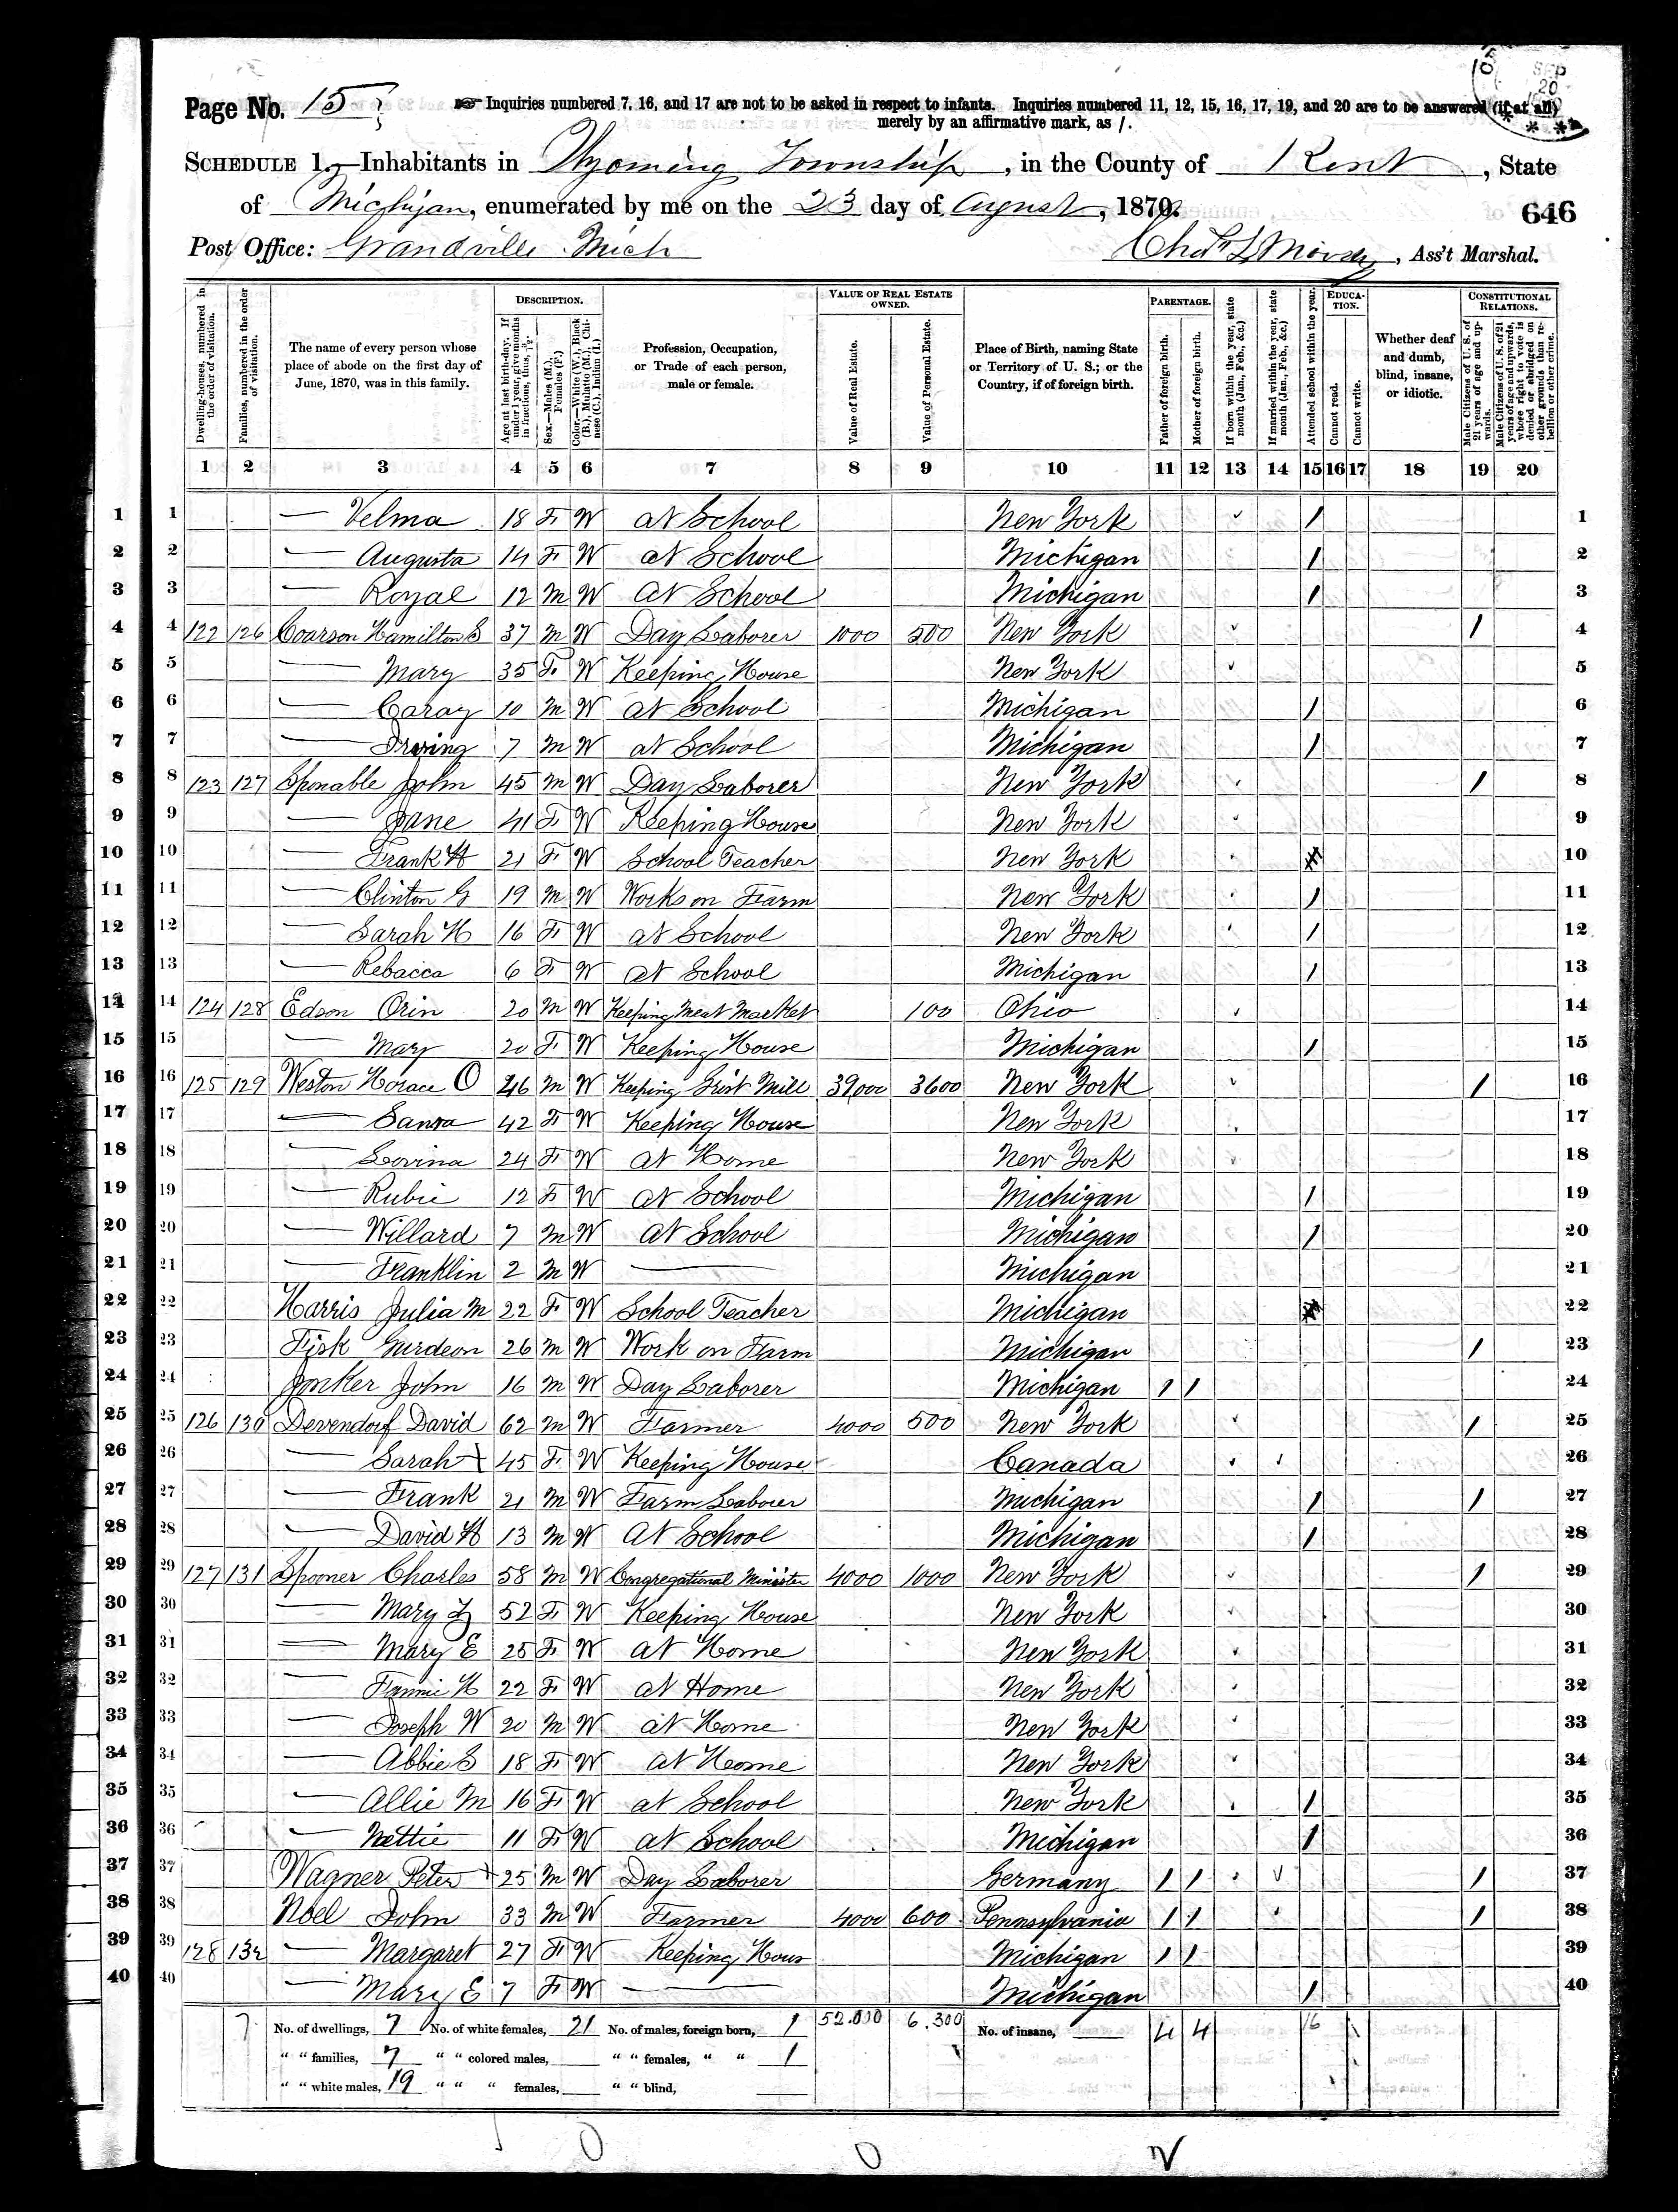 Page No. 15
Inquiries numbered 7, 16, and 17 are not to be asked in respect to infants. Inquiries numbered 11, 12, 15, 16, 17, 19, and 20 are to be answered (if at all)
merely by an affirmative mark, as /.
SCHEDULE 1.—Inhabitants in Wyoming Township, in the County of Kent, State
of Michigan, enumerated by me on the 23 day of August, 1870.
646
Post Office: Grandville Mich
Ass't Marshal.
Dwelling-houses, numbered in the order of visitation.
Families, numbered in the order of visitation.
The name of every person whose place of abode on the first day of June, 1870, was in this family.
DESCRIPTION.
Age at last birth-day. If under 1 year, give months in fractions, thus, 3/12.
Sex.—Males (M.), Females (F.)
Color.—White (W.), Black (B.), Mulatto (M.), Chinese (C.), Indian (I.)
Profession, Occupation, or Trade of each person, male or female.
VALUE OF REAL ESTATE OWNED.
Value of Real Estate.
Value of Personal Estate.
Place of Birth, naming State or Territory of U. S.; or the Country, if of foreign birth.
PARENTAGE.
Father of foreign birth.
Mother of foreign birth.
If born within the year, state month (Jan., Feb., &c.)
If married within the year, state month (Jan., Feb., &c.)
Attended school within the year.
EDUCATION.
Cannot read.
Cannot write.
Whether deaf and dumb, blind, insane, or idiotic.
CONSTITUTIONAL RELATIONS.
Male Citizens of U. S. of 21 years of age and upwards.
Male Citizens of U. S. of 21 years of age and upwards, whose right to vote is denied or abridged on other grounds than rebellion or other crime.
1 2 3 4 5 6 7 8 9 10 11 12 13 14 15 16 17 18 19 20
1 1 — Velma 18 F W at School New York / 1
2 2 — Augusta 14 F W at School Michigan / 2
3 3 — Royal 12 M W At School Michigan / 3
4 4 122 126 Coarson Hamilton S 37 M W Day Laborer 1000 500 New York / 4
5 5 — Mary 35 F W Keeping House New York 5
6 6 — Caray 10 M W at School Michigan / 6
7 7 — Irving 7 M W at School Michigan / 7
8 8 123 127 Sponable John 45 M W Day Laborer New York / 8
9 9 — Jane 41 F W Keeping House New York 9
10 10 — Frank H 21 F W School Teacher New York 10
11 11 — Clinton G 19 M W Works on Farm New York / 11
12 12 — Sarah H 16 F W at School New York / 12
13 13 — Rebacca 6 F W at School Michigan / 13
14 14 124 128 Edson Orin 20 M W Keeping Meat Market 100 Ohio 14
15 15 — Mary 20 F W Keeping House Michigan / 15
16 16 125 129 Weston Horace O 46 M W Keeping Grist Mill 39,000 3600 New York / 16
17 17 — 42 F W Keeping House New York 17
18 18 — Lovina 24 F W at Home New York 18
19 19 — Rubie 12 F W at School Michigan / 19
20 20 — Willard 7 M W at School Michigan / 20
21 21 — Franklin 2 M W — Michigan 21
22 22 Harris Julia M 22 F W School Teacher Michigan 22
23 23 Fisk Gurdeon 26 M W Work on Farm Michigan / 23
24 24 Jonker John 16 M W Day Laborer Michigan / / 24
25 25 126 130 Devendorf David 62 M W Farmer 4000 500 New York / 25
26 26 — Sarah 45 F W Keeping House Canada 26
27 27 — Frank 21 M W Farm Laborer Michigan / / 27
28 28 — David H 13 M W At School Michigan / 28
29 29 127 131 Spooner Charles 58 M W Congregational Minister 4000 1000 New York / 29
30 30 — Mary 52 F W Keeping House New York 30
31 31 — Mary E 25 F W at Home New York 31
32 32 — Fannie H 22 F W at Home New York 32
33 33 — Joseph W 20 M W at Home New York 33
34 34 — Abbie S 18 F W at Home New York 34
35 35 — Allie M 16 F W at School New York / 35
36 36 — Nettie 11 F W at School Michigan / 36
37 37 Wagner Peter 25 M W Day Laborer Germany / / / 37
38 38 Noel John 33 M W Farmer 4000 600 Pennsylvania / / / 38
39 39 128 132 — Margaret 27 F W Keeping Hous Michigan / / 39
40 40 — Mary E 7 F W — Michigan / 40
7 No. of dwellings, 7 No. of white females, 21 No. of males, foreign born, 1 52.000 6.300 No. of insane, 4 4 16
" " families, 7 " " colored males, " " females, " " 1
" " white males, 19 " " " females, " " blind,